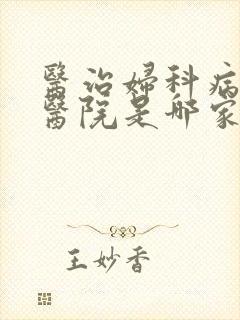 醫治婦科病
醫院是哪家
王妙香